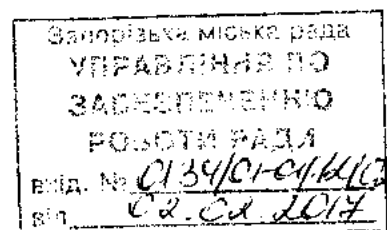 Запорізька міська рада
УПРАВЛІННЯ ПО
ЗАБЕЗПЕЧЕННЮ
РОБОТИ РАДИ
вхід. №
від 02.02.2017